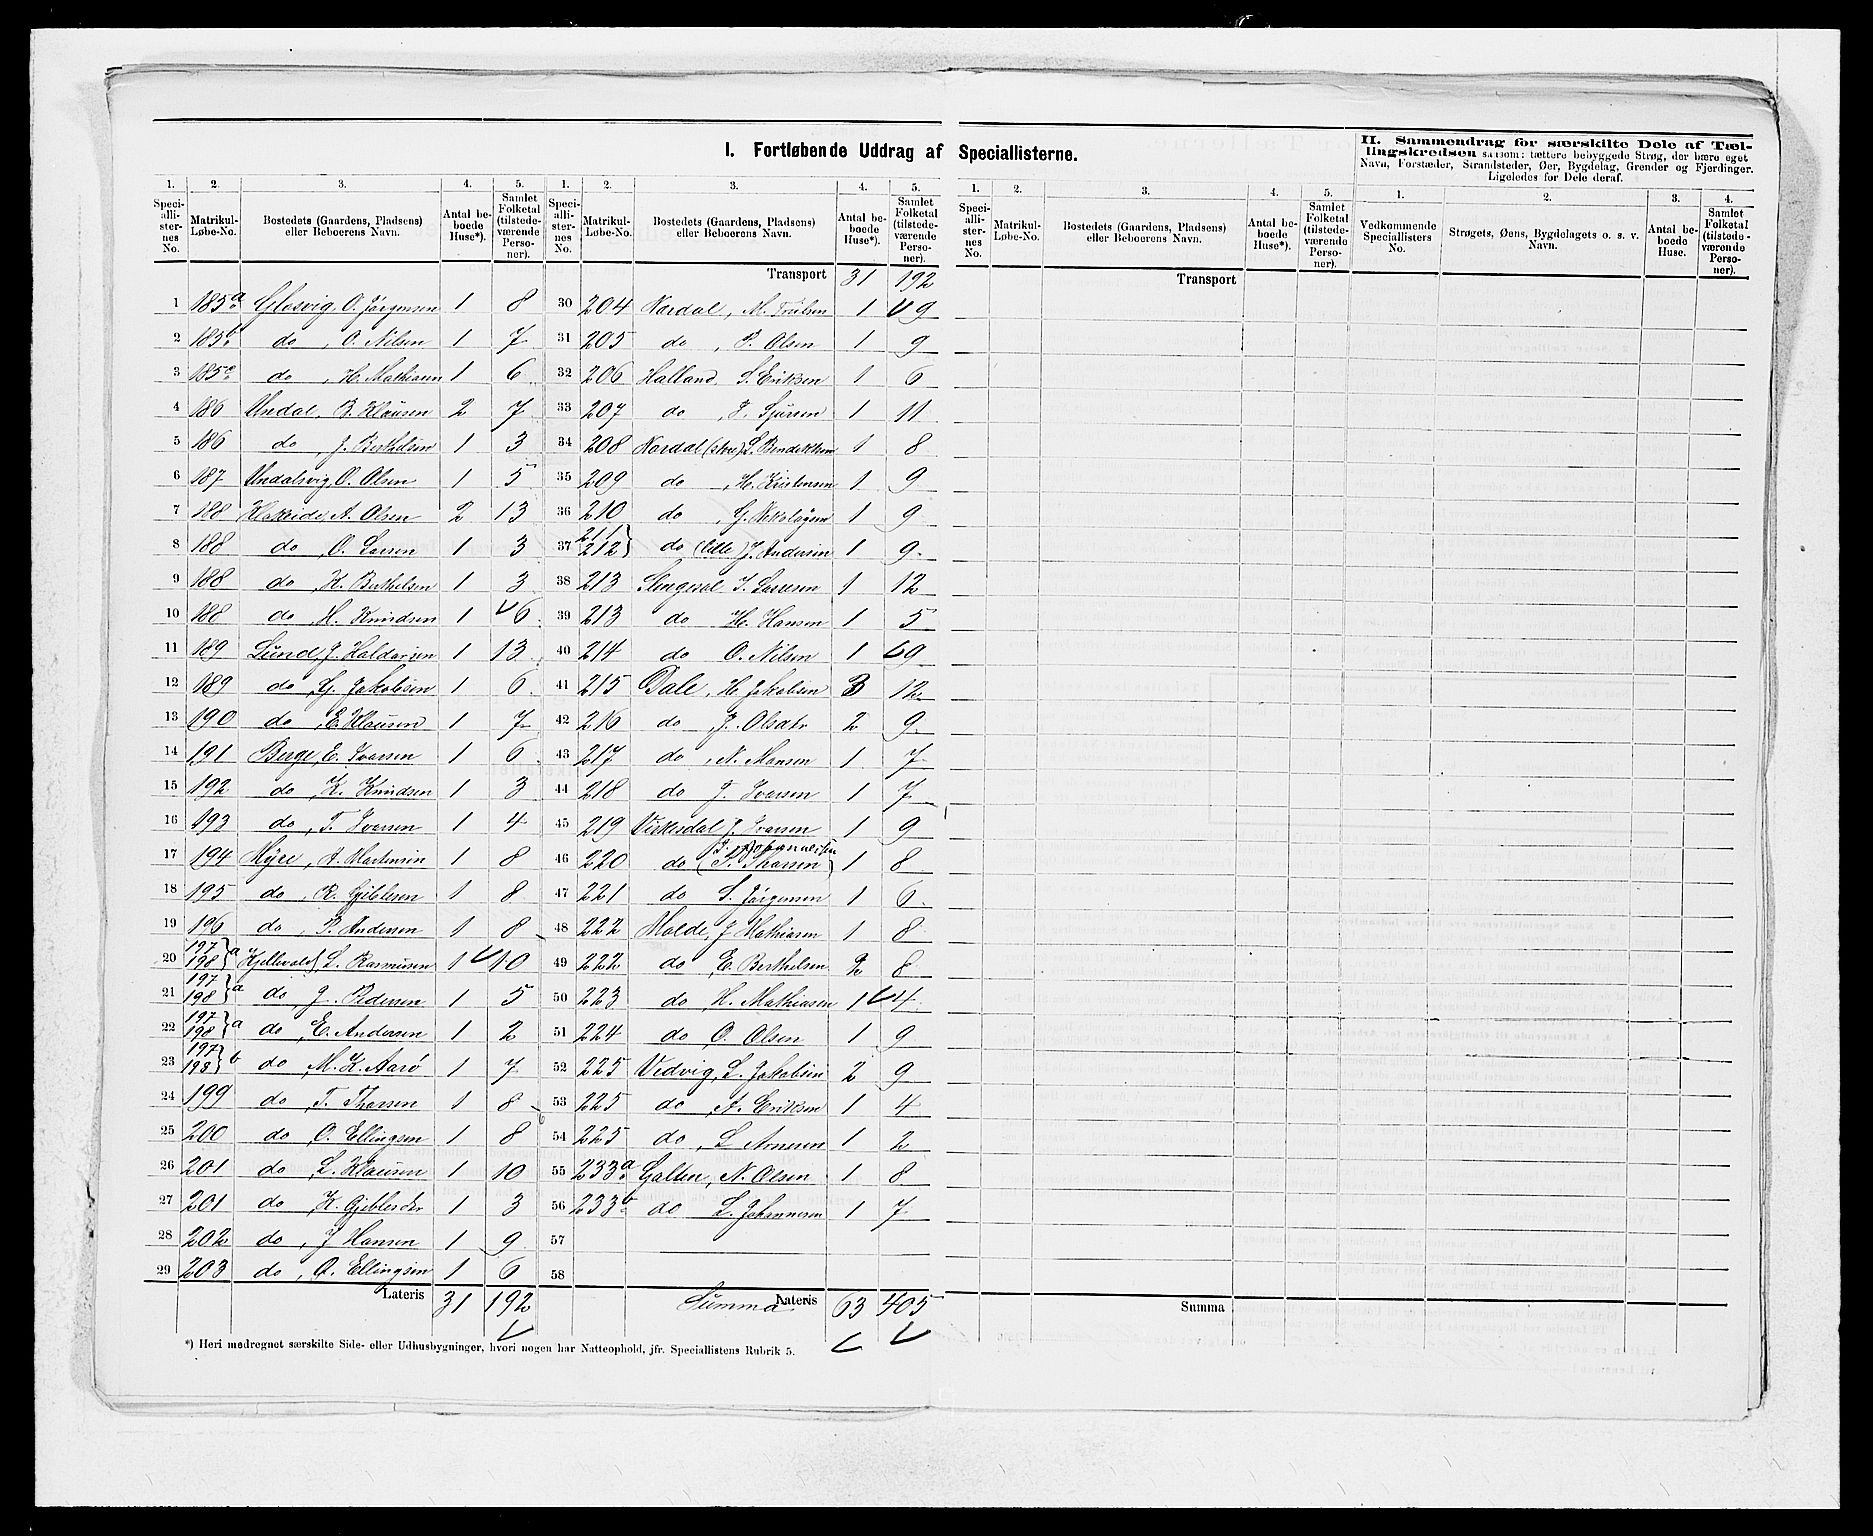 I. Fortløbende Uddrag af Speciallisterne.
II. Sammendrag for særskilte Dele af Tæl-
lingskredsen saasom: tættere bebyggede Strøg, der bære eget
Navn, Forstæder, Strandsteder, Øer, Bygdelag, Grender og Fjerdinger.
Ligeledes for Dele deraf.
1. 2. 3. 4. 5. 1. 2. 3. 4. 5. 1. 2. 3. 4. 5. 1. 2. 3. 4.
Speciallisternes No. Matrikul-Løbe-No. Bostedets (Gaardens, Pladsens) eller Beboerens Navn. Antal beboede Huse*). Samlet Folketal (tilstedeværende Personer).
Speciallisternes No. Matrikul-Løbe-No. Bostedets (Gaardens, Pladsens) eller Beboerens Navn. Antal beboede Huse*). Samlet Folketal (tilstedeværende Personer).
Speciallisternes No. Matrikul-Løbe-No. Bostedets (Gaardens, Pladsens) eller Beboerens Navn. Antal beboede Huse*). Samlet Folketal (tilstedeværende Personer).
Vedkommende Speciallisters No. Strøgets, Øens, Bygdelagets o. s. v. Navn. Antal beboede Huse. Samlet Folketal (tilstedeværende Personer).
1 185a Glosvig, O. Jörgensen 1 8
2 185b do, O. Nilsen 1 7
3 185c do, H. Mathiasen 1 6
4 186 Undal, B. Klausen 2 7
5 186 do, J. Berthelsen 1 3
6 187 Undalsvig, O. Olsen 1 5
7 188 Klakeide, A. Olsen 2 13
8 188 do, O. Larsen 1 3
9 188 do, K. Berthelsen 1 3
10 188 do, M. Knudsen 1 6
11 189 Lund, J. Haldorsen 1 13
12 189 do, G. Jakobsen 1 6
13 190 do, E. Klausen 1 7
14 191 Berge, E. Ivarsen 1 6
15 192 do K. Knudsen 1 3
16 193 do, T. Ivarsen 1 4
17 194 Myre, A. Martensen 1 8
18 195 do, R. Gjeblesen 1 8
19 196 do, P. Andersen 1 8
20 197 198 a Kjellevold, L. Rasmusen 1 10
21 197 198 a do J. Pedersen 1 5
22 197 198 a do, E. Andersen 1 2
23 197 198 b do, M. K. Aarö 1 7
24 199 do, T. Thorsen 1 8
25 200 do, O. Ellingsen 1 8
26 201 do, L. Klausen 1 10
27 201 do K. Gjeblesdr 1 3
28 202 do, J Hansen 1 9
29 203 do, O. Ellingsen 1 6
Lateris 31 192
Transport 31 192
30 204 Nordal, M. 1 9
31 205 do, P. Olsen 1 9
32 206 Halland, S. Eriksen 1 6
33 207 do, T. Sjursen 1 11
34 208 Nordal (store) L. Bendiktsen 1 8
35 209 do, H. Kristensen 1 9
36 210 do, G. Nikolaysen 1 9
37 211 212 do (lille) J. Andersen 1 9
38 213 I. Larsen 1 12
39 213 do H. Hansen 1 5
40 214 do O. Nilsen 1 9
41 215 Dale, H. Jakobsen 3 12
42 216 do J. Olsdtr 2 9
43 217 do, N. Monsen 1 7
44 218 do J. Ivarsen 1 7
45 219 Virkesdal J. Ivarsen 1 9
46 220 do (T. Thorsen) Johannesen 1 8
47 221 do S. Jörgensen 1 6
48 222 Molde, J Mathiasen 1 8
49 222 do, E. Berthelsen 2 8
50 223 do, H. Mathiasen 1 4
51 224 do, O. Olsen 1 9
52 225 Vedvig, L. Jakobsen 2 9
53 225 do, A. Eriksen 1 4
54 225 do, L Arnesen 1 2
55 233a Galten, N. Olsen 1 8
56 233b do L. Johannesen 1 7
57
58
Summa Lateris 63 405
Transport
Summa
*) Heri medregnet særskilte Side- eller Udhusbygninger, hvori nogen har Natteophold, jfr. Speciallistens Rubrik 5.